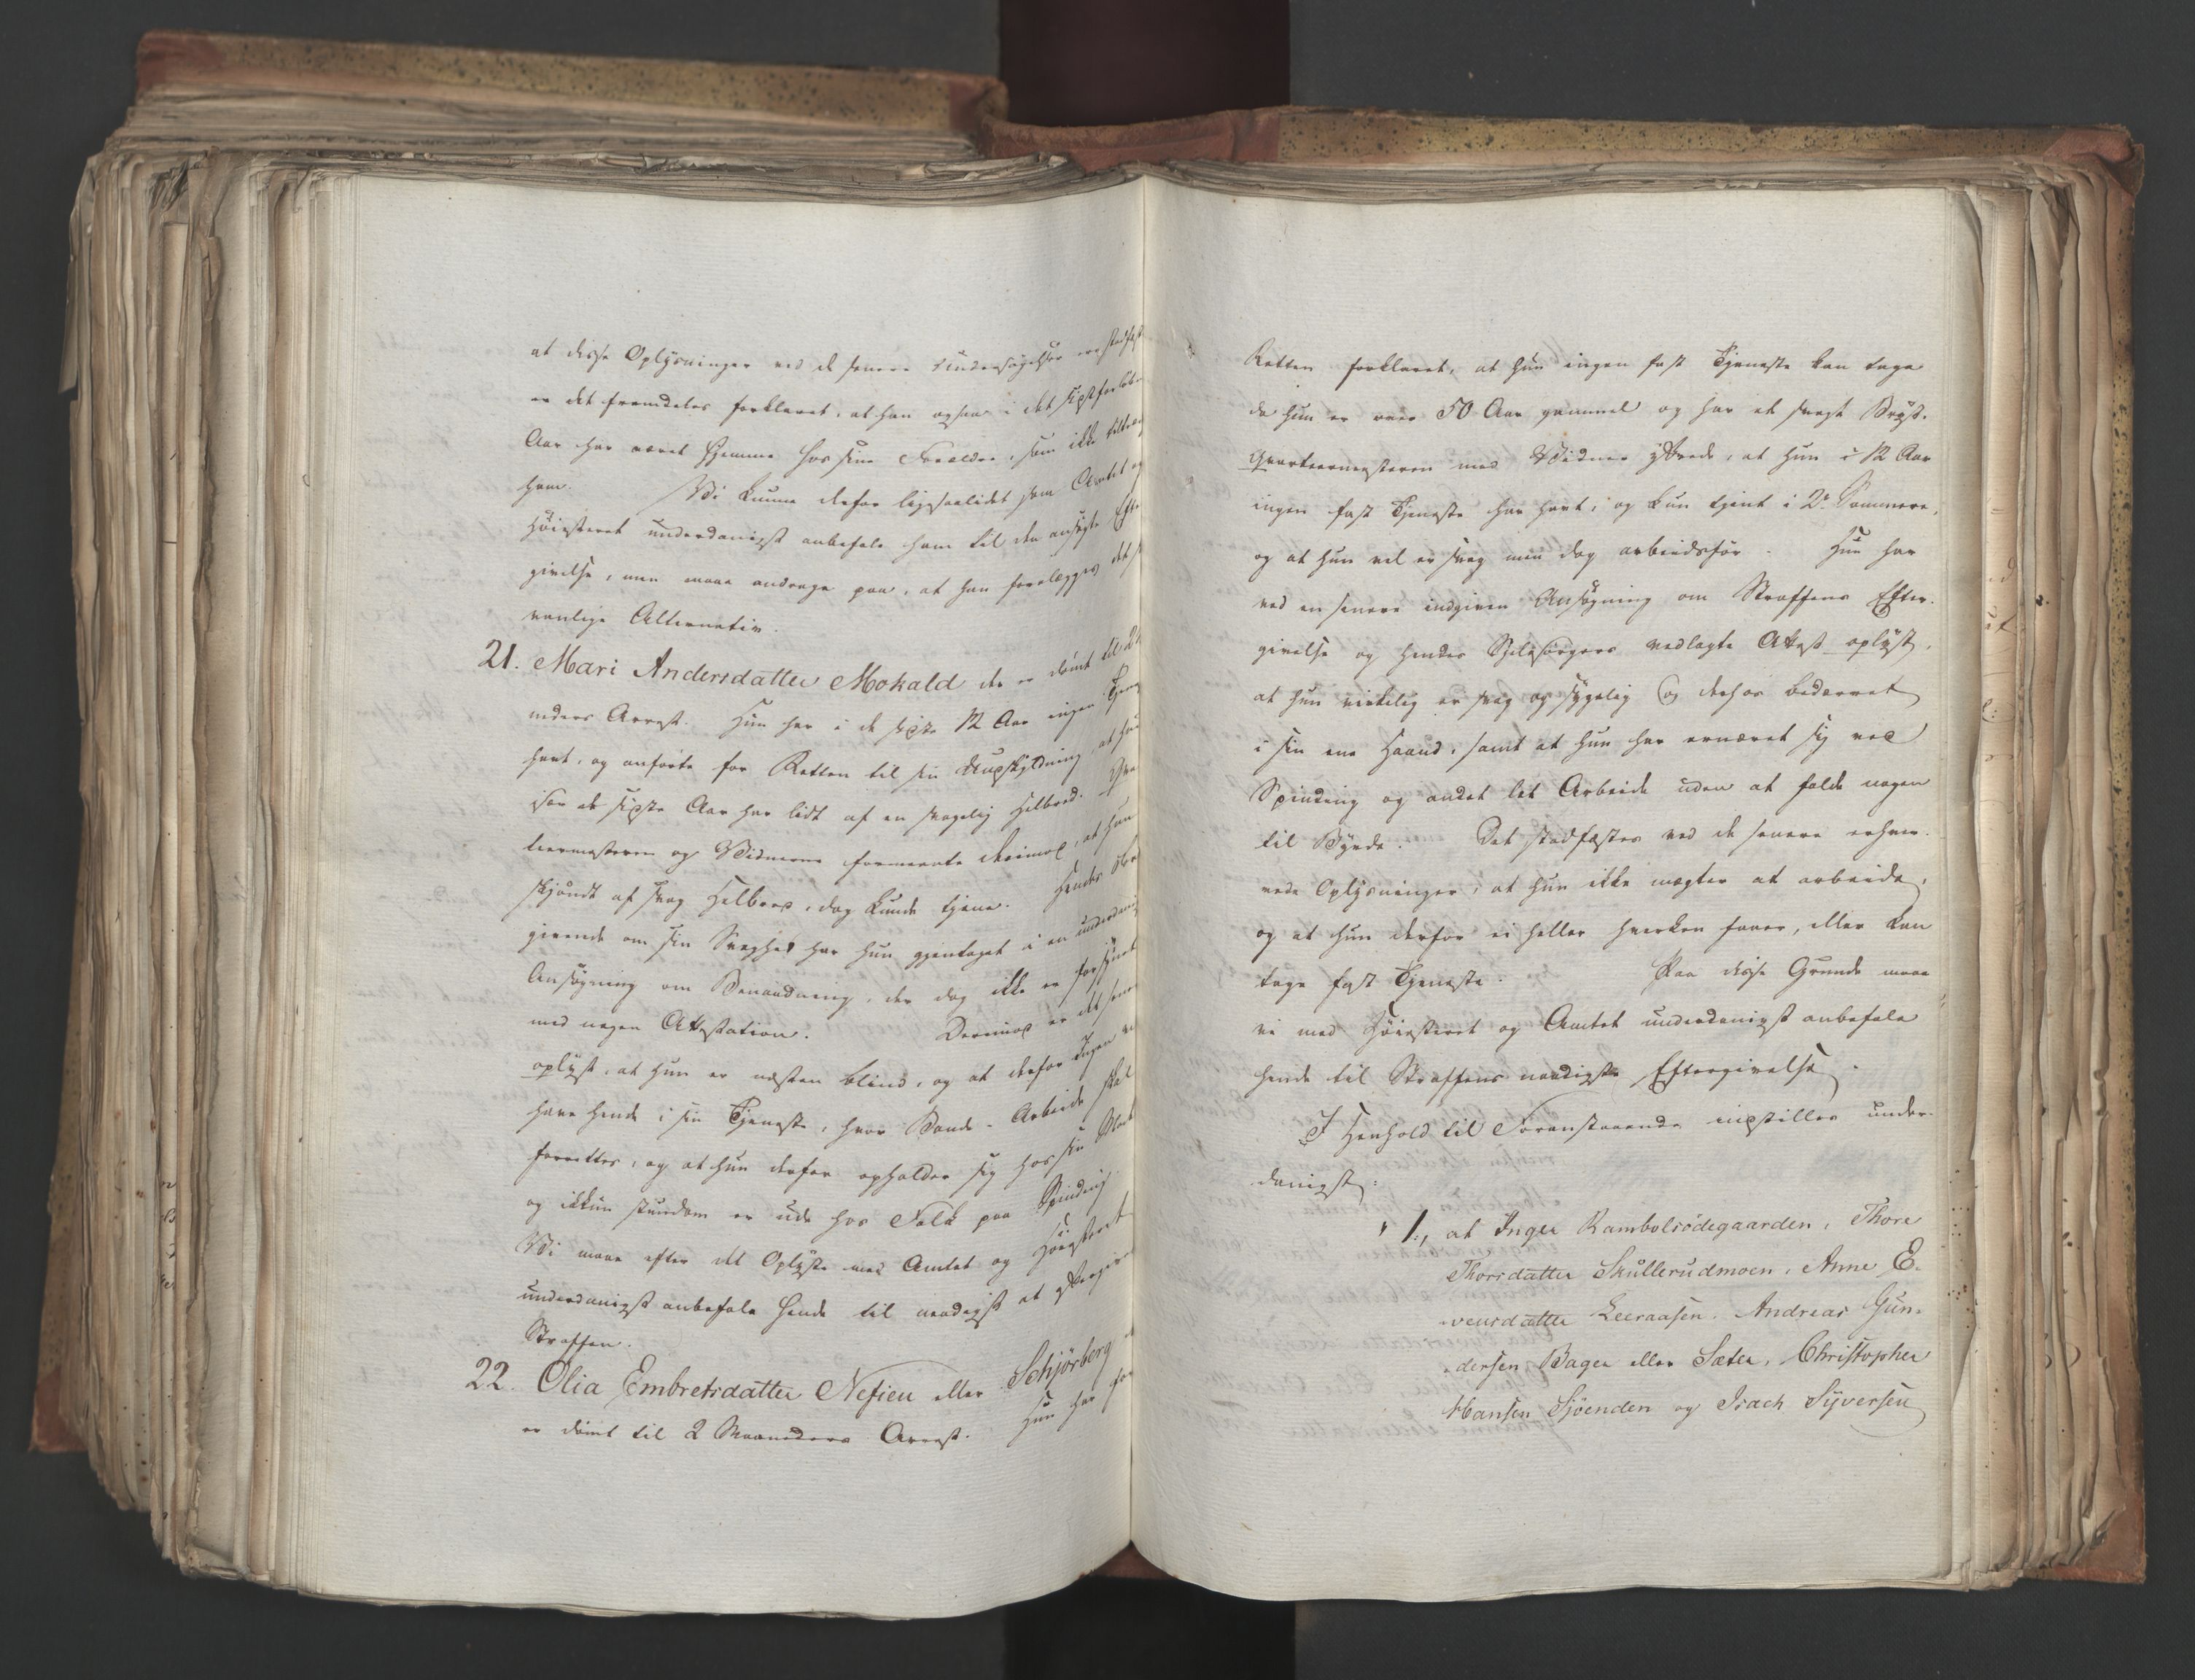 at disse Oplysninger ved de senere Undersøgelser ere stadfæst
er det fremdeles forklaret, at han ogsaa i det sidstforløbne
Aar har været hjemme hos sine Forældre, som ikke
ham. Vi kunne derfor ligesaalidet som Amtet og
Høiesteret underdanigst anbefale ham til den ansøgte Efter
givelse, men maae andrage paa, at han forelægges det
vanlige Alternativ.
21. Mari Andersdatter Mokald der er dømt til 2
neders Arrest. Hun har i de sidste 12 Aar ingen Tjen
havt, og anførte for Retten til sin Undskyldning at hun
især de sidste Aar har lidt af en svagelig Helbred.
teermesteren og Vidnerne formeente derimod, at hun
skjøndt af svag Helbred, dog kunde tjene. Hendes
givende om sin Svaghed har hun gjentaget i en underdanig
Ansøgning om Benaadning, der dog ikke er forsynet
med nogen Attestation. Derimod er det senere
oplyst, at hun er næsten blind, og at derfor Ingen
have hende i sin Tjeneste, hvor Bonde-Arbeide skal
forrettes, og at hun derfor opholder sig hos sin
og ikkun stundom er ude hos Folk paa Spinding
Vi maae efter det Oplyste med Amtet og Høiesteret
underdanigst anbefale hende til naadigst at eftergives
Straffen.
22. Olia Embretsdatter Nefien eller Schjørberg
er dømt til 2 Maaneders Arrest. Hun har for
Retten forklaret, at hun ingen fast Tjeneste kan tage
da hun er over 50 Aar gammel og har et svagt Bryst.
Qvarteermesteren med Vidner yttrede, at hun i 12 Aar
ingen fast Tjeneste har havt, og kun tjent i 2de Sommere,
og at hun vel er svag men dog arbeidsfør. Hun har
ved en senere indgiven Ansøgning om Straffens Efter-
givelse og hendes Sjelesørgers vedlagte Attest oplyst,
at hun virkelig er svag og sygelig og derhos bedærvet
i sin ene Haand, samt at hun har ernæret sig ved
Spinding og andet let Arbeide uden at falde nogen
til Byrde. Det stadfæstes ved de senere erhver-
vede Oplysninger, at hun ikke mægter at arbeide,
og at hun derfor ei heller hverken faaer, eller kan
tage fast Tjeneste. Paa disse Grunde maae
vi med Høiesteret og Amtet underdanigst anbefale
hende til Straffens naadigste Eftergivelse.
I Henhold til Foranstaaende indstilles under-
danigst:
1., at Inger Rambolsødegaarden, Thore
Thorsdatter Skullerudmoen, Anne E-
vensdatter Leeraasen, Andreas Gun-
dersen Bager eller Sæter, Christopher
Hansen Sjøenden og Isach Syversen